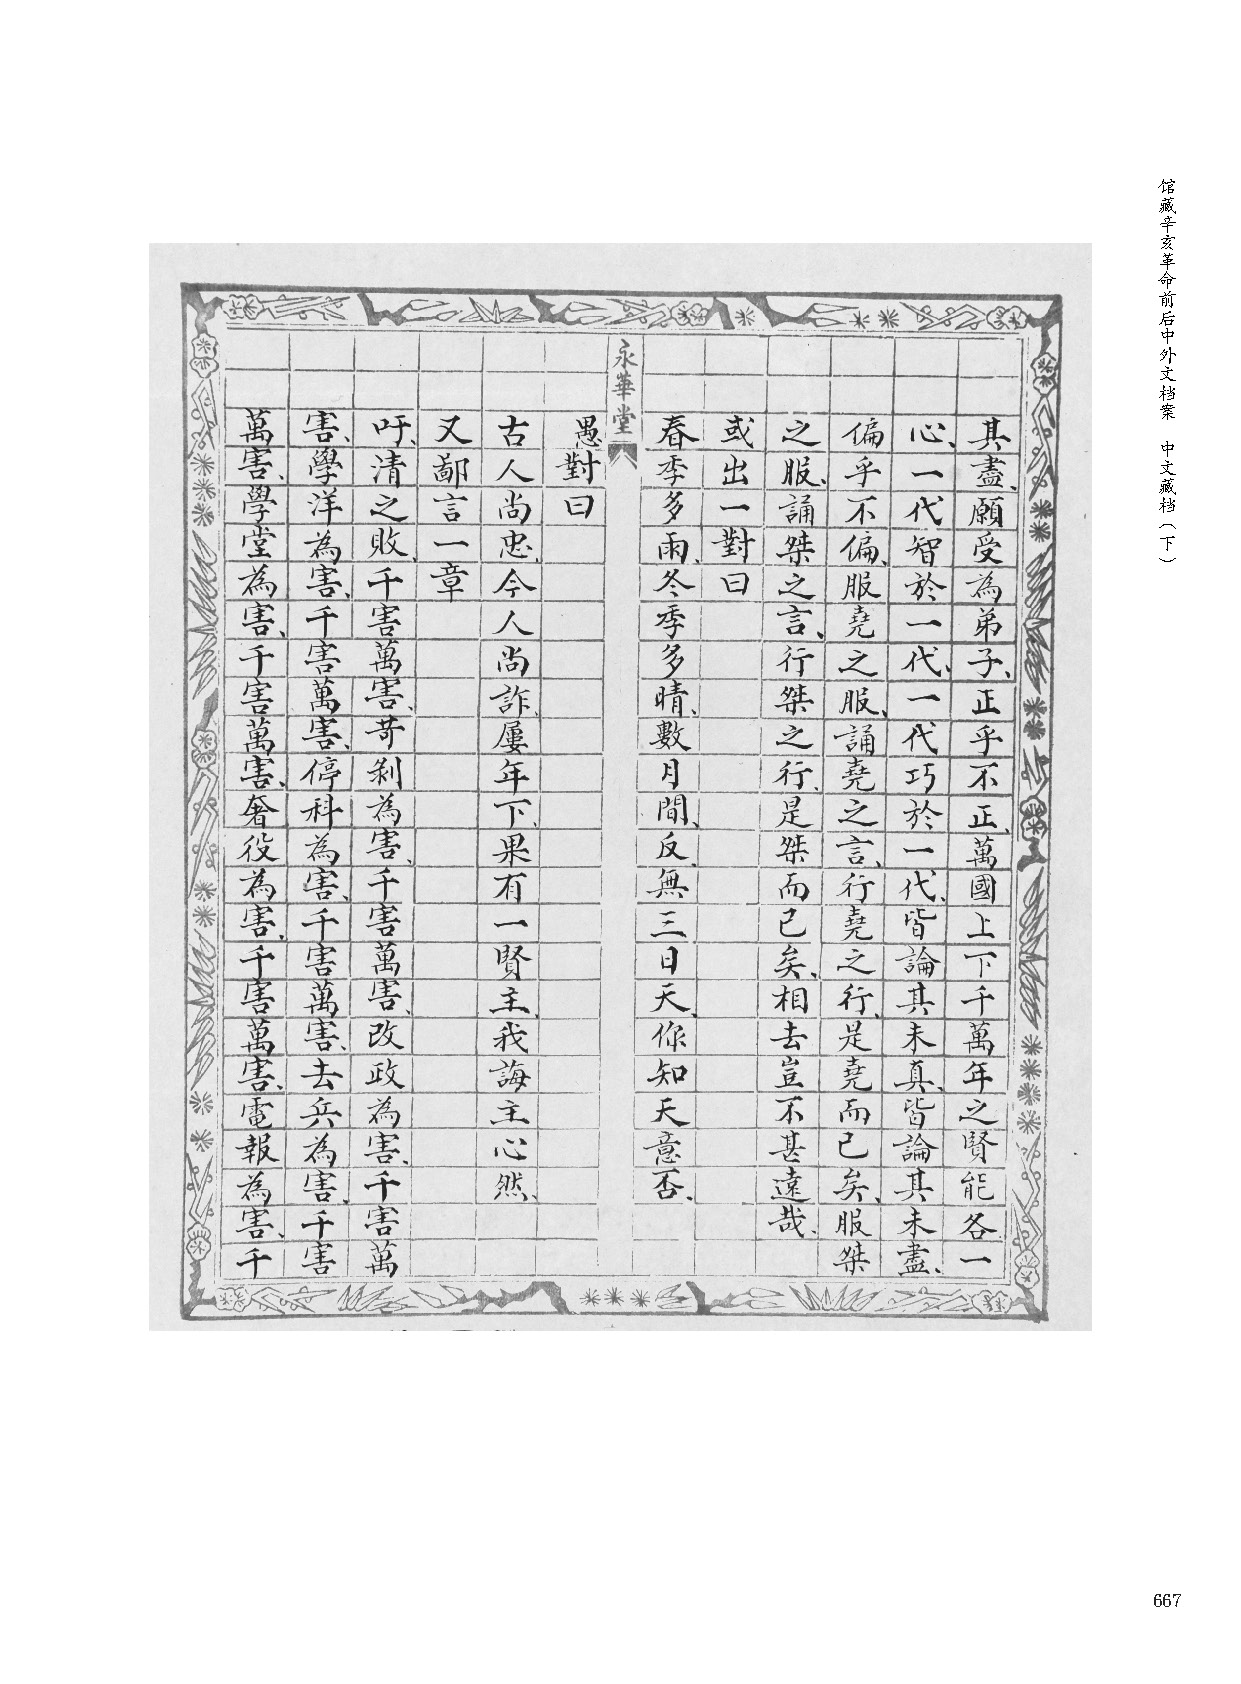 馆藏辛亥革命前后中外文档案 中文藏档（下）
其盡、願受為弟子、正乎不正、萬國上下千萬年之賢能各一
心、一代智於一代、一代巧於一代、皆論其未真、皆論其未盡、
偏乎不偏、服堯之服、誦堯之言、行堯之行、是堯而已矣、服桀
之服、誦桀之言、行桀之行、是桀而已矣、相去豈不甚遠哉、
或出一對曰
春季多雨、冬季多晴、數月間、反無三日天、你知天意否、
永華堂
愚對曰
古人尚忠、今人尚詐、屢年下、果有一賢主、我誨主心然、
又鄙言一章
吁、清之敗、千害萬害、苛刹為害、千害萬害、改政為害、千害萬
害、學洋為害、千害萬害、停科為害、千害萬害、去兵為害、千害
萬害、學堂為害、千害萬害、奢役為害、千害萬害、電報為害、千
667